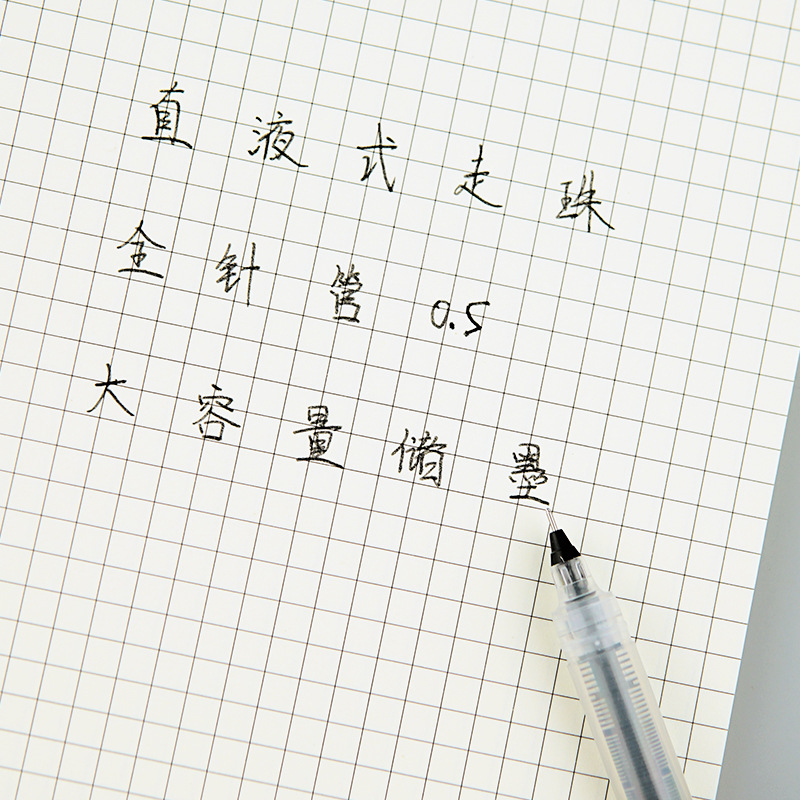 直液式走珠
全针管 0.5
大容量储墨